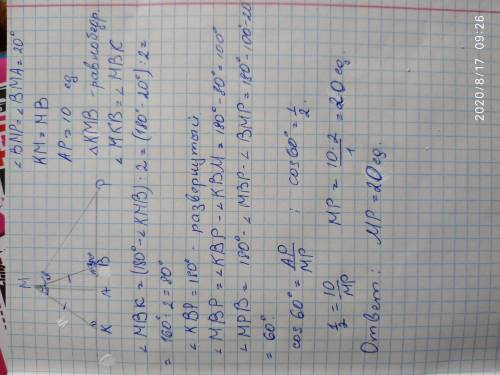 ∠BMP=∠BMA=20°
KM=MB
AP=10 ед.
△KMB равнобедр.
∠MKB=∠MBK
M
K A B P
∠MBK=(180°-∠KMB):2=((180°-20°):2=
=160°:2=80°
∠KBP=180° - развернутый
∠MBP=∠KBP-∠KBM=180°-80°=100°
∠MPB=180°-∠MBP-∠BMP=180°-100°-20
=60°
cos60°=AP/MP ; cos60°=1/2.
1/2=10/MP MP=10·2/1=20 ед
Ответ: MP=20 ед.
2020/8/17 09:26